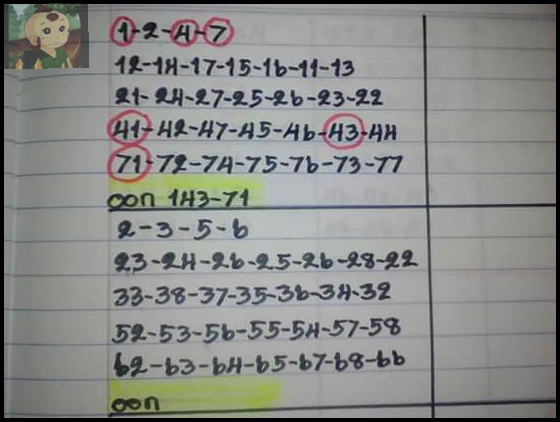 1-2-4-7
12-14-17-15-16-11-13
21-24-27-25-26-23-22
41-42-47-45-46-43-44
71-72-74-75-76-73-77
ออก 143-71
2-3-5-6
23-24-26-25-26-28-22
33-38-37-35-36-34-32
52-53-56-55-54-57-58
62-63-64-65-67-68-66
ออก